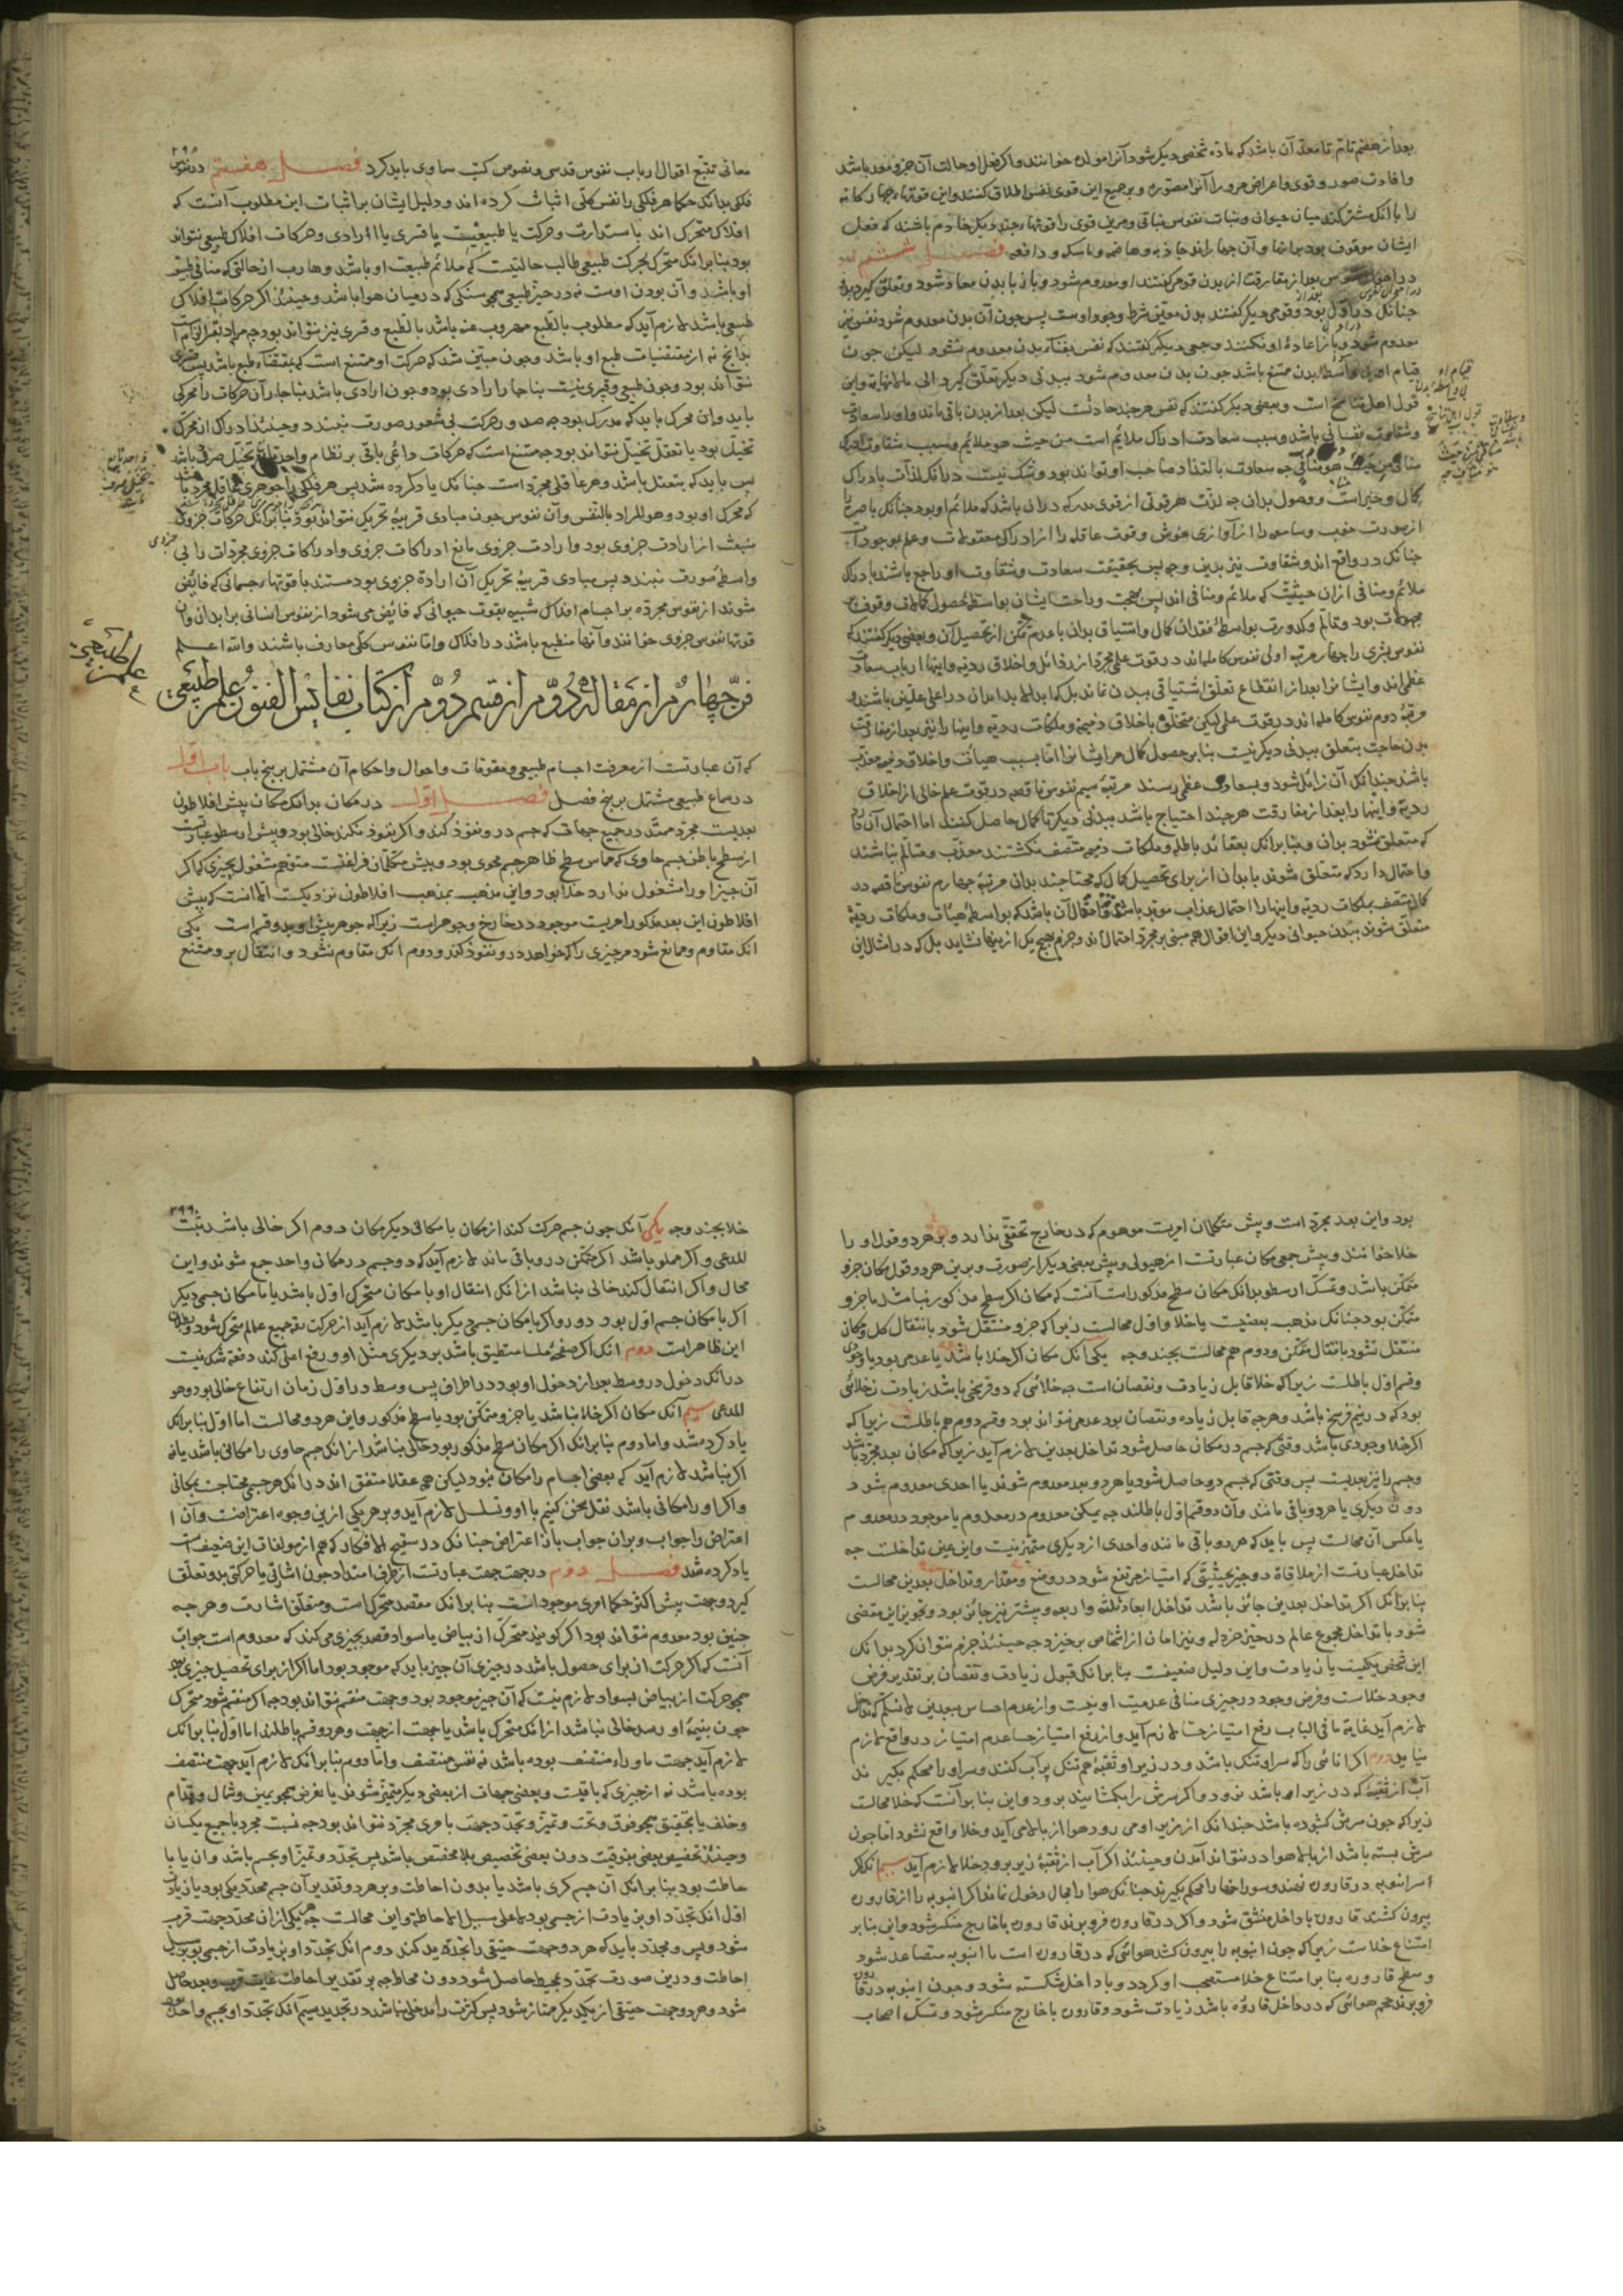 بعد از هضم تام تا معد آن باشد که ماده شخصی دیگر شود آنرا مولده خوانند و اگر فعل او حالت آن جزو معد باشد
و افادت صور و قوی و اعراض مر او را آنرا مصوره و بر جمیع این قوی نفس اطلاق کنند و این قوتهاء چهارگانه
را با آنک مشترکند میان حیوان و نبات نفوس نباتی و مر این قوی را قوتهاء چند دیگر خادم باشند که فعل
ایشان موقوف بود برانها و آن چهار اند جاذبه و هاضمه و ماسکه و دافعه فصل ششم
در احوال نفوس بعد از مفارقت از بدن قومی گفتند او معدوم شود و باز با بدن معاد شود و تعلق گیرد بدو
چنانک در اول بود و قومی دیگر گفتند بدن معین شرط وجود اوست پس چون آن بدن معدوم شود نفس نیز
معدوم شود و باز اعاده او نکنند و جمعی دیگر گفتند که نفس بفناء بدن معدوم نشود لیکن چون
قیام او بی واسطه بدن ممتنع باشد چون بدن معدوم شود ببدنی دیگر تعلق گیرد الی مالانهایه و این
قول اهل تناسخ است و بعضی دیگر گفتند که نفس هر چند حادثست لیکن بعد از بدن باقی ماند و او را سعادت
و شقاوت نفسانی باشد و سبب سعادت ادراک ملائم است من حیث هو ملائم و سبب شقاوت ادراک
منافی من حیث هو منافی چه سعادت با لتذاذ صاحب او تواند بود و شک نیست در آنک لذات با دراک
کمال و خیر است و وصول بدان چه لذت هر قوتی از قوی مدرکه در آن باشد که ملائم او بود چنانک باصره را
از صورت خوب و سامعه را از آوازی خوش و قوت عاقله را از ادراک معقولات و علم بموجودات
چنانک در واقع اند و شقاوت نیز بدین وجه پس بحقیقت سعادت و شقاوت او راجع باشند با دراک
ملائم و منافی از آن حیثیت که ملائم و منافی اند پس بهجت و راحت ایشان بواسطه حصول کمالات و وقوف بر
مجهولات بود و تألم و کدورت بواسطه فقدان کمال و اشتیاق بدان با عدم تمکن از تحصیل آن و بعضی دیگر گفتند که
نفوس بشری را چهار مرتبه اولی نفوس کامله اند در قوت علمی مجرد از رذائل و اخلاق ردیه و اینها ارباب سعادت
عظمی اند و ایشانرا بعد از انقطاع تعلق اشتیاقی ببدن نماند بلکه ابدا در اعلی علیین باشند و
مرتبه دوم نفوس کامله اند در قوت علمی لیکن متخلق باخلاق ذمیمه و ملکات ردیه و اینها را نیز بعد از مفارقت
بدن حاجت بتعلق ببدنی دیگر نیست بنا بر حصول کمال مر ایشانرا اما بسبب هیئات و اخلاق ذمیمه معذب
باشند چندانک آن زائل شود و بسعادت عظمی رسند مرتبه سیم نفوس ناقصه در قوت علم خالی از اخلاق
ردیه و اینها را بعد از مفارقت هر چند احتیاج باشد ببدنی دیگر تا کمال حاصل کنند اما احتمال آن دارد
که متعلق نشود بدان و بنا بر آنک بعقائد باطله و ملکات ذمیمه متصف نگشتند معذب و متألم نباشند
و احتمال دارد که متعلق شوند بابدان از برای تحصیل کمال که محتاجند بدان مرتبه چهارم نفوس ناقصه در
کمالات متصف بملکات ردیه و اینها را احتمال عذاب مؤبد باشد و احتمال آن باشد که بواسطه هیئات و ملکات ردیه
متعلق شوند ببدن حیوانی دیگر و این اقوال همه مبنی بر مجرد احتمال اند و جزم بهیچ یک از اینها نشاید بل که در امثال این
قیام او
بی واسطه بدن
قول اهل تناسخ
۲۹۸
معانی تتبع اقوال ارباب نفوس قدسی و نصوص کتب سماوی باید کرد فصل هفتم در نفوس
فلکی بدانک حکما هر فلکی را نفس کلی اثبات کرده اند و دلیل ایشان بر اثبات این مطلوب آنست که
افلاک متحرک اند باستدارت و حرکت یا طبیعیست یا قسری یا ارادی و حرکات افلاک طبیعی نتواند
بود بنا بر آنک متحرک بحرکت طبیعی طالب حالتیست که ملائم طبیعت او باشد و هارب از حالتی که منافی طبیعت
او باشد و آن بودن اوست نه در حیز طبیعی همچو سنگی که در میان هوا باشد و حینئذ اگر حرکات افلاک
طبیعی باشد لازم آید که مطلوب بالطبع مهروب عنه باشد بالطبع و قسری نیز نتواند بود چه مراد بقسر آنست
بدانچ نه از مقتضیات طبع او باشد و چون مبین شد که حرکت او ممتنع است که بمقتضاء طبع باشد پس قسری
نتواند بود و چون طبیعی و قسری نیست بناچار ارادی بود و چون ارادی باشد بناچار آن حرکات را محرکی
باید و آن محرک باید که مدرک بود چه صدور حرکت بی شعور صورت نبندد و حینئذ ادراک آن محرک
تخیل بود یا تعقل تخیل نتواند بود چه ممتنع است که حرکات دائمی باقی بر نظام واحد تابع تخیل صرف باشد
پس باید که بتعقل باشد و هر عاقلی مجرد است چنانک یاد کرده شد پس هر فلکی را جوهری عاقل مجرد باشد
که محرک او بود و هو المراد بالنفس و آن نفوس چون مبادی قریبه تحریک نتواند بود بنا بر آنک حرکات جزوی
منبعث از ارادت جزوی بود و ارادت جزوی تابع ادراکات جزوی و ادراکات جزوی مجردات را بی
واسطه صورت نبندد پس مبادی قریبه تحریک آن اراده جزوی بود مستند باقوتهاء جسمانی که فائض
شوند از نفوس مجرده بر اجسام افلاک شبیه بقوت حیوانی که فائض می شود از نفوس انسانی بر ابدان و آن
قوتها نفوس جزوی خوانند و آنها منطبع باشند در افلاک و اما نفوس کلی معارف باشند و الله اعلم
فن چهارم از مقاله دوم از قسم دوم از کتاب نفایس الفنون علم طبیعی
علم طبیعی
که آن عبارتست از معرفت اجسام طبیعی و مقومات و احوال و احکام آن مشتمل بر پنج باب باب اول
در سماع طبیعی مشتمل بر پنج فصل فصل اول در مکان بدانک مکان پیش افلاطون
بعدیست مجرد ممتد در جمیع جهات که جسم درو نفوذ کند و اگر نفوذ نکند خالی بود و پیش ارسطو عبارتست
از سطح باطن جسم حاوی که مماس سطح ظاهر جسم محوی بود و پیش متکلمان فراغیست متوهم مشغول بچیزی که اگر
آن چیز او را مشغول ندارد خلا بود و این مذهب بمذهب افلاطون نزدیکست الا آنست که پیش
افلاطون این بعد مذکور امریست موجود در خارج و جوهر است زیرا که جوهر پیش او بدو قسم است یکی
آنک مقاوم و ممانع شود مر چیزی را که خواهد درو نفوذ کند و دوم آنک مقاوم نشود و انتقال برو ممتنع
بود و این بعد مجرد است و پیش متکلمان امریست موهوم که در خارج تحققی ندارد و بر هر دو قول او را
خلا خوانند و پیش جمعی مکان عبارتست از هیولی و پیش بعضی دیگر از صورت و برین هر دو قول مکان جزو
متمکن باشد و تمسک ارسطو بدانک مکان سطح مذکور است آنست که مکان اگر سطح مذکور نباشد یا جزو
متمکن بود چنانک مذهب بعضیست یا خلا و اول محالست زیرا که جزو منتقل شود بانتقال کل و مکان
منتقل نشود بانتقال متمکن و دوم هم محالست بچند وجه یکی آنک مکان اگر خلا باشد یا عدمی بود یا وجودی
و قسم اول باطلست زیرا که خلا قابل زیادت و نقصان است چه خلائی که دو فرسخی باشد زیادت ز خلائی
بود که در نیم فرسخ باشد و هرچه قابل زیاده و نقصان بود عدمی نتواند بود و قسم دوم هم باطلست زیرا که
اگر خلا وجودی باشد وقتی که جسم در مکان حاصل شود تداخل بعدین لازم آید زیرا که مکان بعد مجرد باشد
و جسم را نیز بعدیست پس وقتی که جسم درو حاصل شود یا هر دو بعد معدوم شوند یا احدی معدوم شود
دون دیگری یا هر دو باقی مانند و آن دو قسم اول باطلند چه تمکن معدوم در معدوم یا موجود در معدوم
یا عکس آن محالست پس باید که هر دو باقی مانند و احدی از دیگری متمیز نیست و این عین تداخلست چه
تداخل عبارتست از ملاقاة دو چیز بحیثیتی که امتیاز مرتفع شود در وضع و مقدار و تداخل بعدین محالست
بنا بر آنک اگر تداخل بعدین جائز باشد تداخل ابعاد ثلثه و اربعه و بیشتر نیز جائز بود و تجویز این مفضی
شود با تداخل مجموع عالم در حیز خردله و نیز امان از اشخاص برخیزد چه حینئذ جزم نتوان کرد بر آنک
این شخص یکیست یا زیادت و این دلیل ضعیفست بنا بر آنک قبول زیادت و نقصان بر تقدیر فرض
وجود خلاست و فرض وجود در چیزی منافی عدمیت او نیست و از عدم احساس ببعدین لا نسلم که تداخل
لازم آید غایة ما فی الباب رفع امتیاز حسا لازم آید و از رفع امتیاز حسا عدم امتیاز در واقع لازم
نیاید دوم اگر انائی را که سر او تنگ باشد و در زیر او ثقبه هم تنگ پر آب کنند و سر او را محکم بگیرند
آب از ثقبه که در زیر او باشد نرود و اگر سرش را بگشایند برود و این بنا بر آنست که خلا محالست
زیرا که چون سرش گشوده باشد چندانک از زیر او می رود هوا از بالا می آید و خلا واقع نشود اما چون
سرش بسته باشد از بالا هوا در نتواند آمدن و حینئذ اگر آب از ثقبه زیر برود خلا لازم آید سیم آنک اگر
سر انبوبه در قاروره نهند و سوراخها را محکم بگیرند چنانک هوا را مجال دخول نماند اگر انبوبه را از قاروره
بیرون کشند قاروره با داخل منشق شود و اگر در قاروره فرو برند قاروره با خارج منکسر شود و این بنا بر
امتناع خلاست زیرا که چون انبوبه را بیرون کشند هوائی که در قاروره است با انبوبه متصاعد شود
و سطح قاروره بنا بر امتناع خلا مستصحب او گردد و با داخل شکسته شود و چون انبوبه در قاروره
فرو برند حجم هوائی که در داخل قاروره باشد زیادت شود و قاروره با خارج منکسر شود و تمسک اصحاب
۲۹۹
خلا بچند وجه یکی آنک چون جسم حرکت کند از مکان با مکانی دیگر مکان دوم اگر خالی باشد ثبت
المدعی و اگر مملو باشد اگر متمکن درو باقی ماند لازم آید که دو جسم در مکانی واحد جمع شوند و این
محال و اگر انتقال کند خالی نباشد از آنک انتقال او با مکان متحرک اول باشد یا با مکان جسمی دیگر
اگر با مکان جسم اول بود دور و اگر با مکان جسمی دیگر باشد لازم آید از حرکت بقه جمیع عالم متحرک شود و بطلان
این ظاهر است دوم آنک اگر صفحه ملسا منطبق باشد بر دیگری مثل او و رفع اعلی کند دفعة شک نیست
در آنک دخول در وسط بعد از دخول او بود در اطراف پس وسط در اول زمان ارتفاع خالی بود و هو
المدعی سیم آنک مکان اگر خلا نباشد یا جزو متمکن بود یا سطح مذکور و این هر دو محالست اما اول بنا بر آنک
یاد کرده شد و اما دوم بنا بر آنک اگر مکان سطح مذکور بود خالی نباشد از آنک جسم حاوی را مکانی باشد یا نه
اگر نباشد لازم آید که بعضی اجسام را مکان نبود لیکن همه عقلا متفق اند در آنک هر جسمی محتاجست بمکانی
و اگر او را مکانی باشد نقل سخن کنیم با او و تسلسل لازم آید و بر هر یکی از این وجوه اعتراضست و آن
اعتراض را جواب و بر آن جواب باز اعتراض چنانک در تنقیح الافکار که هم از مولفات این ضعیف است
یاد کرده شد فصل دوم در جهت جهت عبارتست از طرفی امتداد چون اشارتی یا حرکتی بدو تعلق
گیرد و جهت پیش اکثر حکما امری موجود است بنا بر آنک مقصد متحرک است و متعلق اشارت و هرچه
چنین بود معدوم نتواند بود اگر گویند متحرک از بیاض با سواد قصد بچیزی می کند که معدوم است جواب
آنست که اگر حرکت از برای حصول باشد در چیزی آن چیز باید که موجود بود اما اگر از برای تحصیل چیزی بود
همچو حرکت از بیاض بسواد لازم نیست که آن چیز موجود بود و جهت منقسم نتواند بود چه اگر منقسم شود متحرک
چون بنیمه او رسد خالی نباشد از آنک متحرک باشد یا جهت از جهت و هر دو قسم باطلند اما اول بنا بر آنک
لازم آید جهت ماوراء منتصف بوده باشد نه نفس منتصف و اما دوم بنا بر آنک لازم آید جهت منتصف
بوده باشد نه از چیزی که باقیست و بعضی جهات از بعضی دیگر متمیز شوند یا بعرض همچو یمین و شمال و قدام
و خلف یا بحقیقتی همچو فوق و تحت و تمیز و تحدد جهت با مری مجرد نتواند بود چه نسبت مجرد با جمیع یکسان
و حینئذ تخصیص بعضی بفوقیت دون بعضی تخصیص بلا مخصص باشد پس تحدد و تمیز او بجسم باشد و آن یا با
حاطت بود بنا بر آنک آن جسم کری باشد یا بدون احاطت و بر هر دو تقدیر آن جسم محدد یکی بود یا زیادت
اول آنک تحدد او بزیادت از جسمی بود لا علی سبیل الاحاطة و این محالست چه هر یکی از آن محدد جهت قرب
شود و بس و محدد باید که هر دو جهت حقیقی را تحدید کند دوم آنک تحدد او بزیادت از جسمی بود بر سبیل
احاطت و درین صورت تحدد بمحیط حاصل شود دون محاط چه بر تقدیر احاطت غایت قرب و بعد حاصل
شود و هر دو جهت حقیقی از یکدیگر ممتاز شود پس کثرت را مدخلی نباشد در تحدید سیم آنک تحدد او بجسم واحد بود